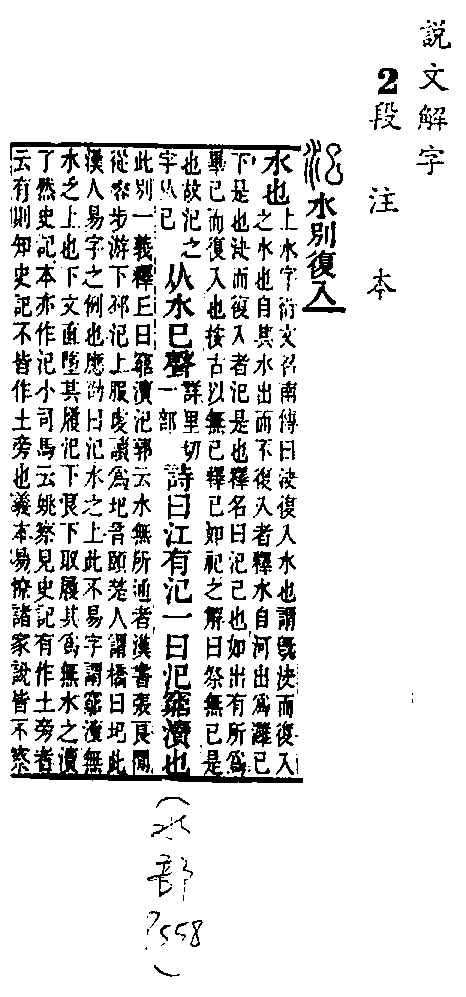 説文解字
2段注本
水別復入
水也
上水字衍文召南傳曰決復入水也謂旣決而復入
之水也自其水出而不復入者釋水自河出爲灉已
下是也決而復入者汜是也釋名曰汜已也如出有所爲
畢已而復入也按古以無已釋巳如祀之解曰祭無已是
也故汜之
字从巳
从水巳聲
詳里切
一部
詩曰江有汜一曰汜窮瀆也
此別一義釋丘曰窮瀆汜郭云水無所通者漢書張良閒
從容步游下邳汜上服虔讀爲圯音頤楚人謂橋曰圯此
漢人易字之例也應劭曰汜水之上此不易字謂窮瀆無
水之上也下文直墮其履汜下良下取履其爲無水之瀆
了然史記本亦作汜小司馬云姚察見史記有作土旁者
云有則知史記不皆作土旁也義本易憭諸家說皆不察
(水部P558)